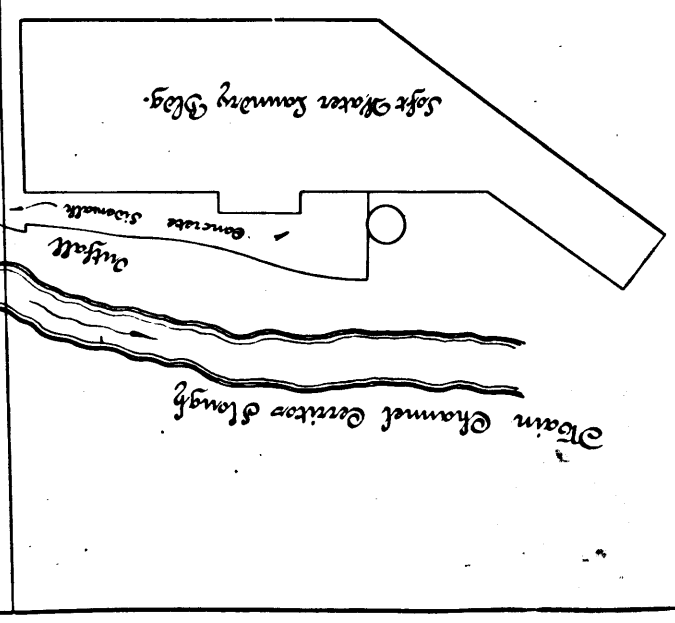 Main Channel Cerritos Slough
Outfall
Concrete Sidewalk
Soft Water Laundry Bldg.